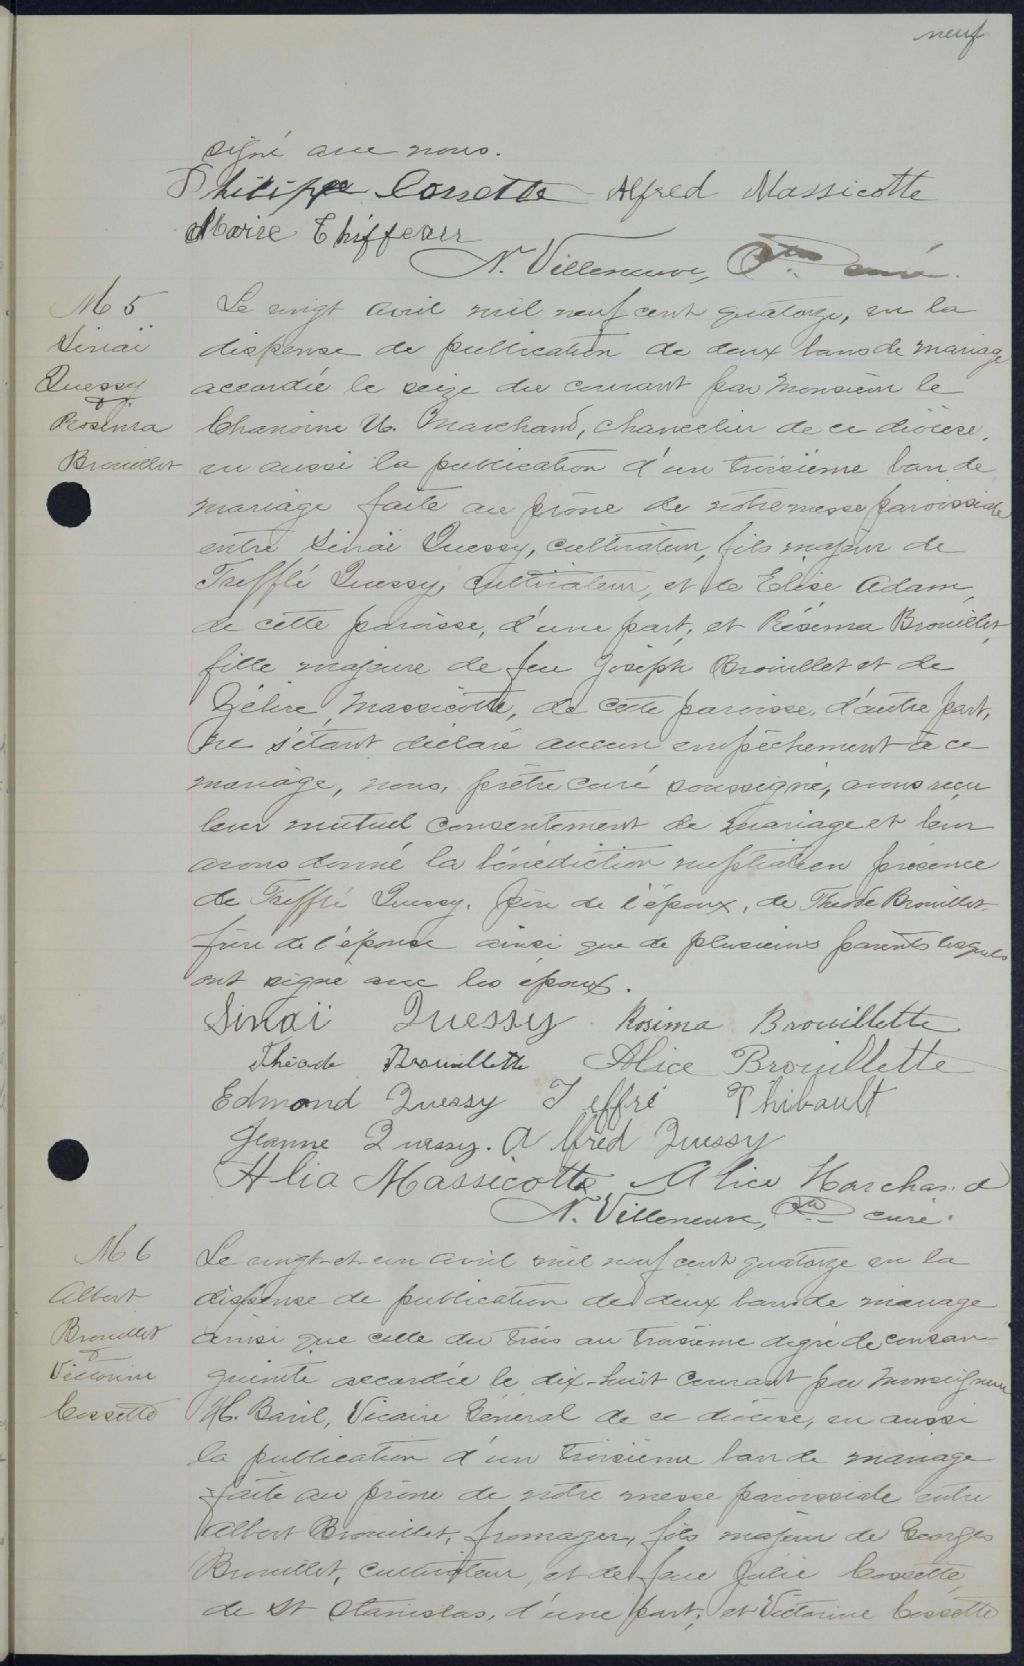 neuf
signé avec nous.
Philippe Cossette Alfred Massicotte
Marie Thiffeau
N. Villeneuve, Ptre curé.
M 5
Sinaï
Quessy
&
Rosima
Brouillet
Le vingt avril mil neuf cent quatorze, vu la
dispense de publication de deux bans de mariage
accordée le seize du courant par Monsieur le
Chanoine U. Marchand, chancelier de ce diocèse,
vu aussi la publication d'un troisième ban de
mariage faite au prône de notre messe paroissiale
entre Sinaï Quessy, cultivateur, fils majeur de
Trefflé Quessy, cultivateur, et de Elise Adam,
de cette paroisse, d'une part, et Rosima Brouillet,
fille majeure de feu Joseph Brouillet et de
Zélire Massicotte, de cette paroisse, d'autre part,
ne s'étant déclaré aucun empêchement à ce
mariage, nous, prêtre curé soussigné, avons reçu
leur mutuel consentement de mariage et leur
avons donné la bénédiction nuptiale en présence
de Trefflé Quessy, père de l'époux, de Théode Brouillet
frère de l'épouse ainsi que de plusieurs parents lesquels
ont signé avec les époux.
Sinaï Quessy Rosima Brouillette
Théode Brouillette Alice Brouillette
Edmond Quessy Teffré Thibault
Jeanne Quessy. Alfred Quessy
Alia Massicotte Alice Marchand
N. Villeneuve, Ptre curé.
M 6
Albert
Brouillet
&
Victorine
Cossette
Le vingt-et-un avril mil neuf cent quatorze vu la
dispense de publication de deux bans de mariage
ainsi que celle du trois au troisième degré de consan-
guinité accordée le dix-huit courant par Monseigneur
H. Baril, Vicaire Général de ce diocèse, vu aussi
la publication d'un troisième ban de mariage
faite au prône de notre messe paroissiale entre
Albert Brouillet, fromager, fils majeur de Georges
Brouillet, cultivateur, et de feue Julie Cossette,
de St Stanislas, d'une part; et Victorine Cossette